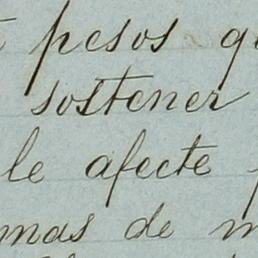 pesos
sostener
le afecte
mas de